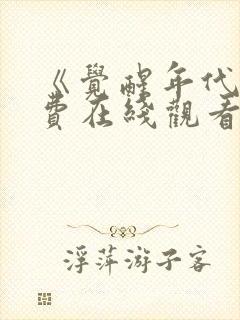 《覺醒年代
費在綫觀看
浮萍游子客